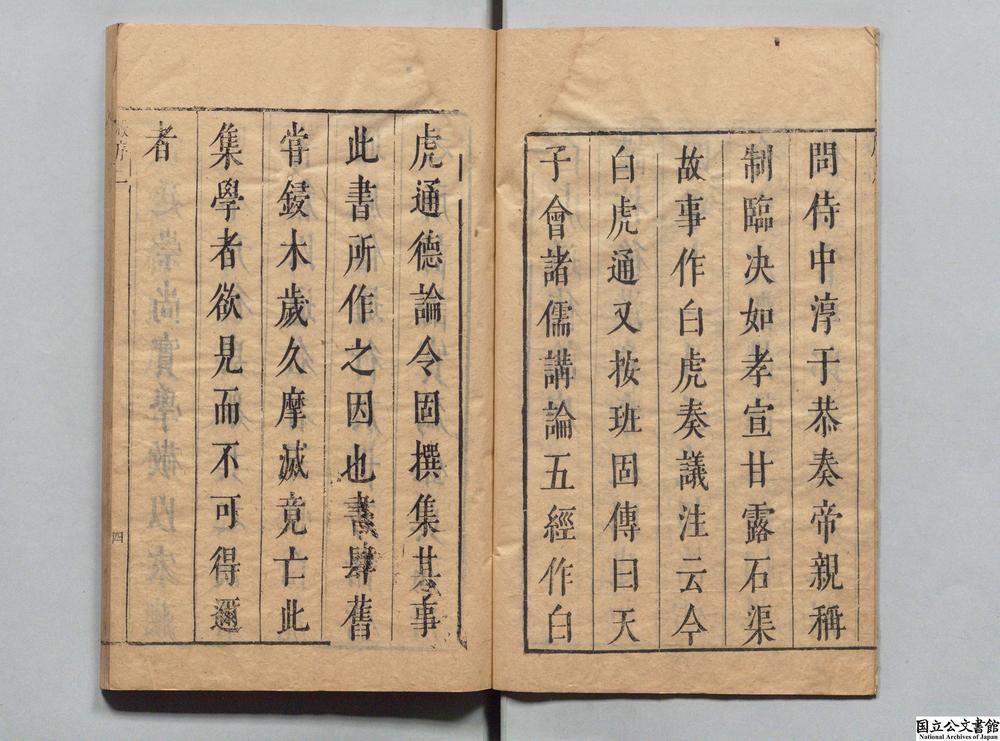 問侍中淳于恭奏帝親稱
制臨決如孝宣甘露石渠
故事作白虎奏議注云今
白虎通又按班固傳曰天
子會諸儒講論五經作白
虎通德論令固撰集其事
此書所作之因也書肆舊
嘗鋟木歲久摩滅竟亡此
集學者欲見而不可得邇
者
四
国立公文書館
National Archives of Japan